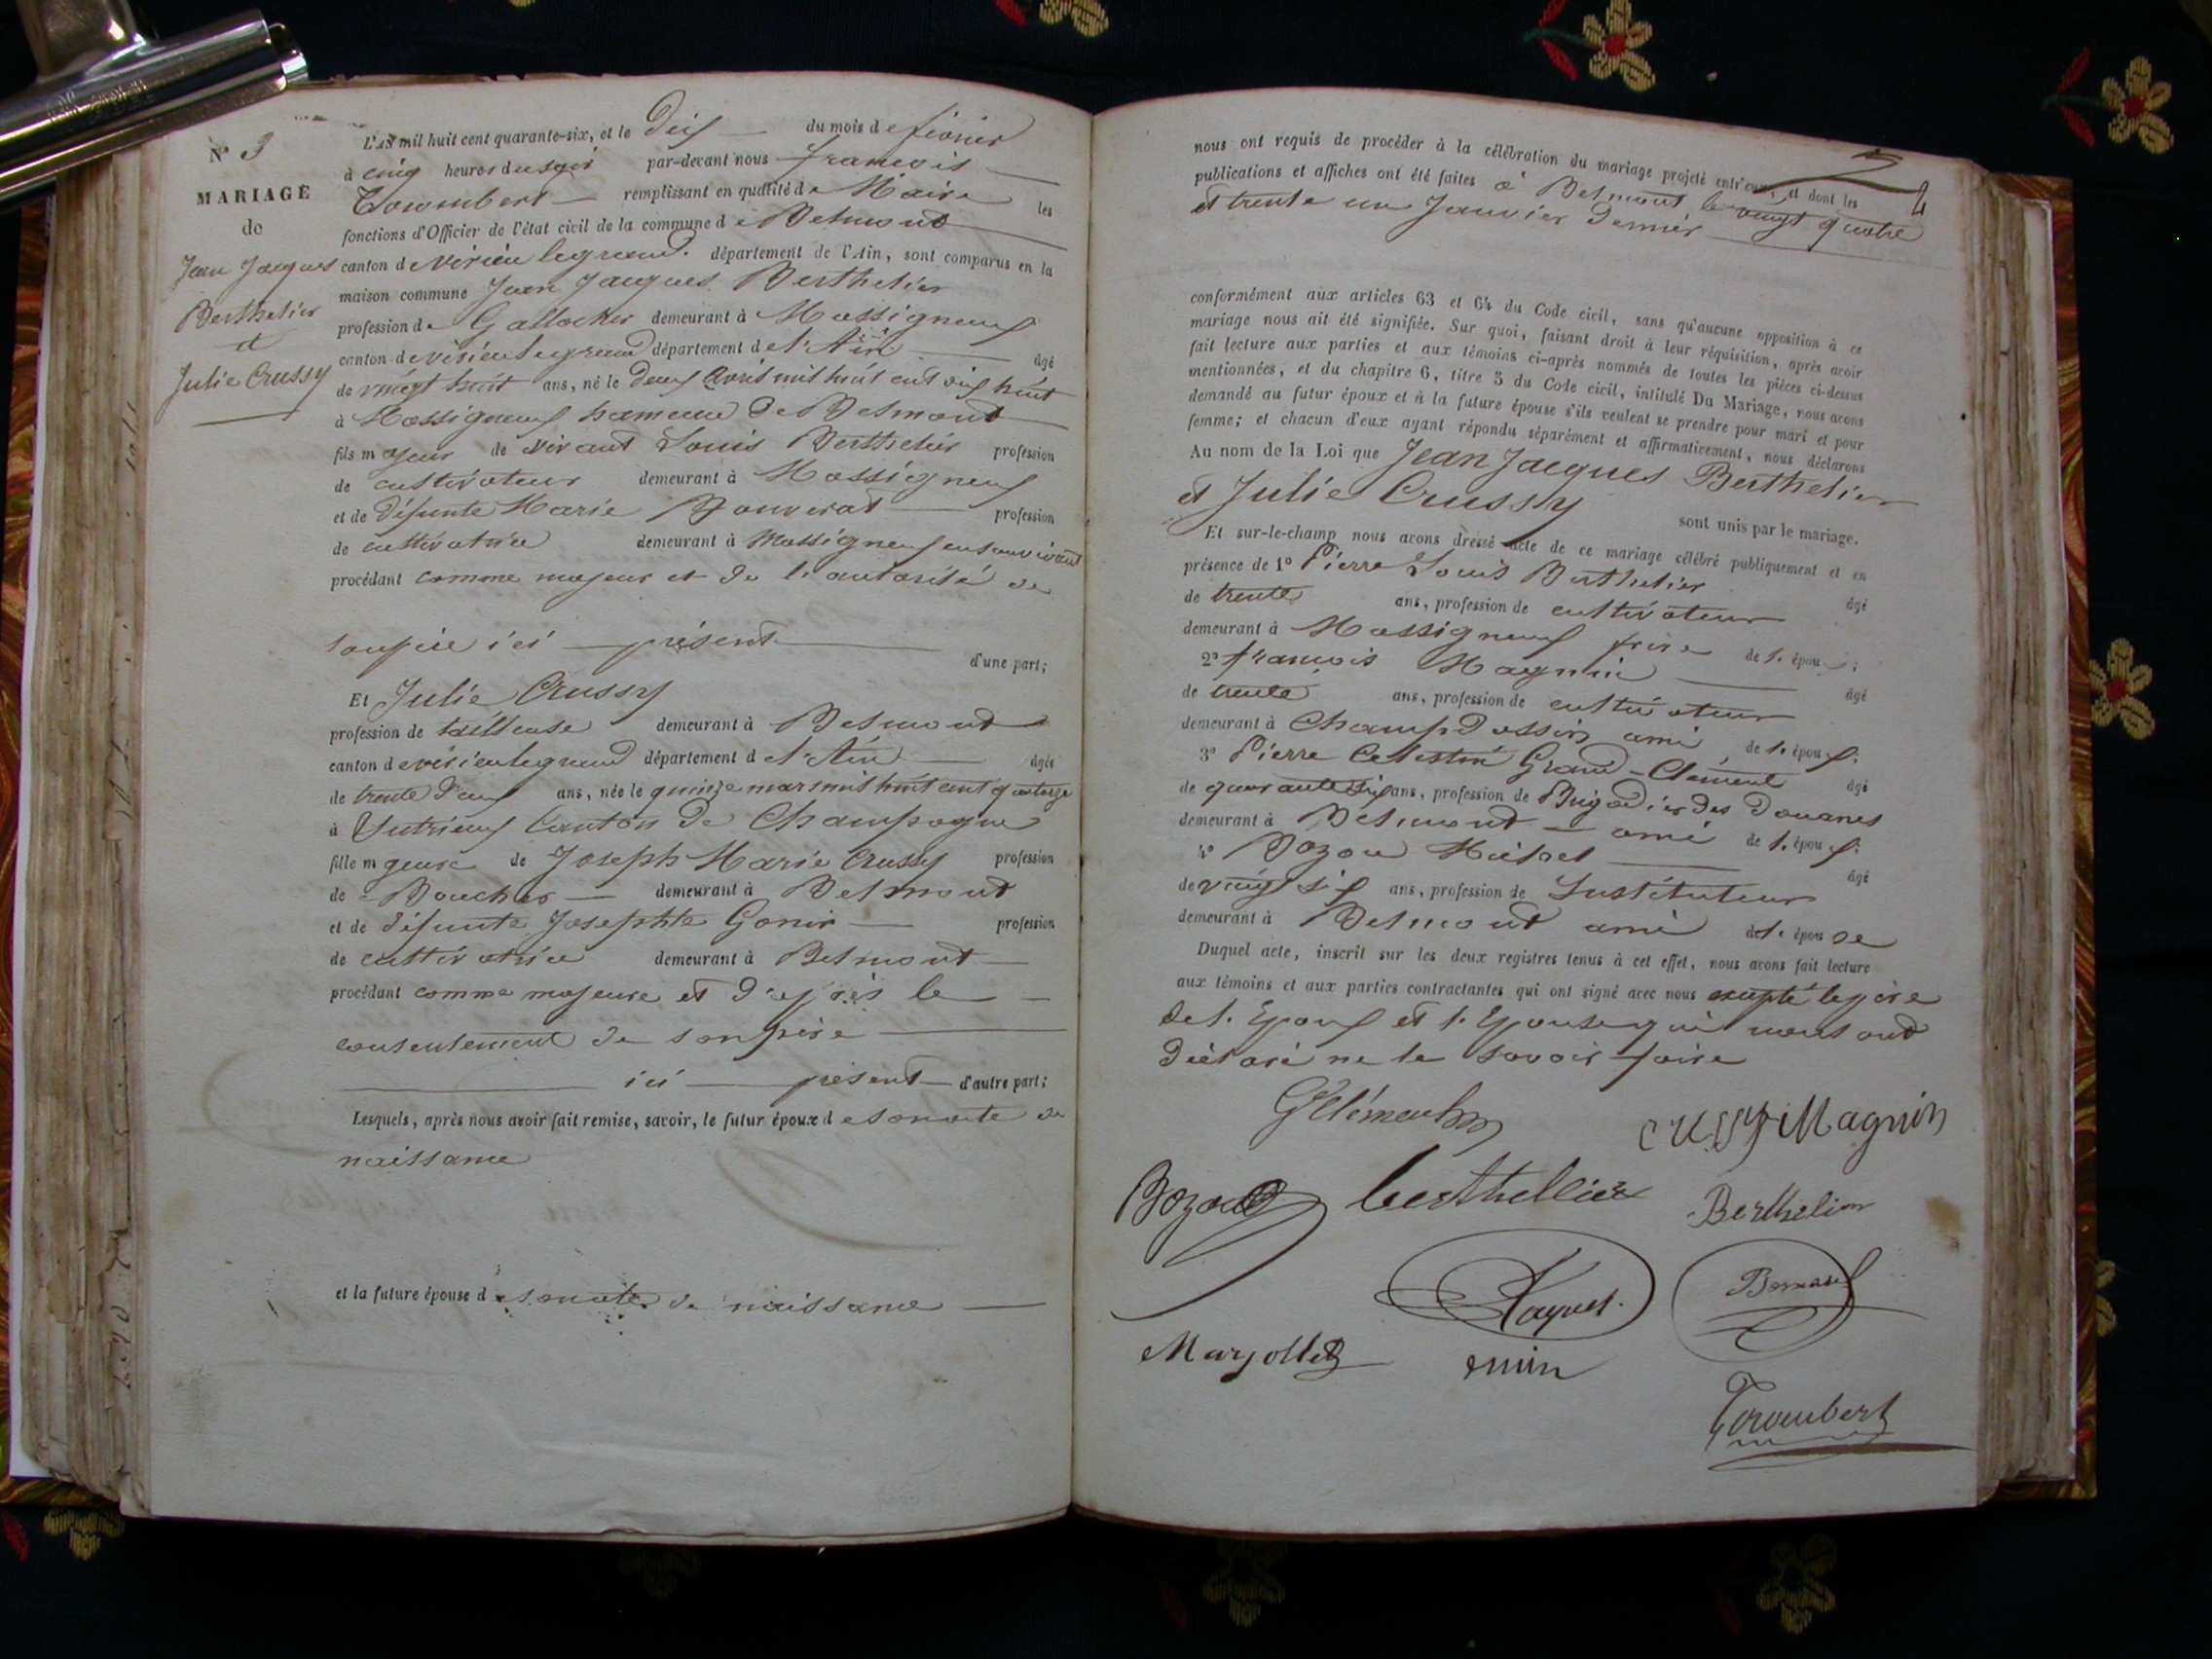 N° 3
MARIAGE
de
Jean Jacques
Berthelier
et
Julie Crussy
L'AN mil huit cent quarante-six, et le Dix du mois de février
à cinq heures du soir par-devant nous françois
Trombert remplissant en qualité de Maire les
fonctions d'Officier de l'état civil de la commune de Belmont
canton de virieu legrand. département de l'Ain, sont comparus en la
maison commune Jean Jacques Berthelier
profession de Gallocher demeurant à Massigneux
canton de virieu legrand département de l'Ain âgé
de vingt huit ans, né le deux avril mil huit cent dix huit
à Massigneux hameau de Belmont
fils majeur de vivant Louis Berthelier profession
de cultivateur demeurant à Massigneux
et de défunte Marie Bouverat profession
de cultivatrice demeurant à Massigneux en son vivant
procédant comme majeur et de l'autorité de
son père ici présent d'une part;
Et Julie Crussy
profession de tailleuse demeurant à Belmont
canton de virieu legrand département de l'Ain âgée
de trente deux ans, née le quinze mars mil huit cent quatorze
à Sutrieux Canton de Champagne
fille majeure de Joseph Marie Crussy profession
de Boucher demeurant à Belmont
et de défunte Josephte Gonin profession
de cultivatrice demeurant à Belmont
procédant comme majeure et d'après le
consentement de son père
ici présent d'autre part;
Lesquels, après nous avoir fait remise, savoir, le futur époux de son acte de
naissance
et la future épouse de son acte de naissance
nous ont requis de procéder à la célébration du mariage projeté entr'eux, et dont les
publications et affiches ont été faites à Belmont le vingt quatre
et trente un Janvier dernier
conformément aux articles 63 et 64 du Code civil, sans qu'aucune opposition à ce
mariage nous ait été signifiée. Sur quoi, faisant droit à leur réquisition, après avoir
fait lecture aux parties et aux témoins ci-après nommés de toutes les pièces ci-dessus
mentionnées, et du chapitre 6, titre 5 du Code civil, intitulé Du Mariage, nous avons
demandé au futur époux et à la future épouse s'ils veulent se prendre pour mari et pour
femme; et chacun d'eux ayant répondu séparément et affirmativement, nous déclarons
Au nom de la Loi que Jean Jacques Berthelier
et Julie Crussy sont unis par le mariage.
Et sur-le-champ nous avons dressé acte de ce mariage célébré publiquement et en
présence de 1° Pierre Louis Berthelier âgé
de trente ans, profession de cultivateur
demeurant à Massigneux frère de l'époux;
2° françois Magnin âgé
de trente ans, profession de cultivateur
demeurant à Champdossin ami de l'époux;
3° Pierre Celestin Grand-Clément âgé
de quarante six ans, profession de Brigadier des Douanes
demeurant à Belmont ami de l'époux;
4° Bozon Michel âgé
de vingt six ans, profession de Instituteur
demeurant à Belmont ami de l'épouse
Duquel acte, inscrit sur les deux registres tenus à cet effet, nous avons fait lecture
aux témoins et aux parties contractantes qui ont signé avec nous excepté le père
de l'époux et l'épouse qui nous ont
déclaré ne le savoir faire
GClément
crussy Magnin
Bozon berthellier Berthelier
Marjollet
Trombert